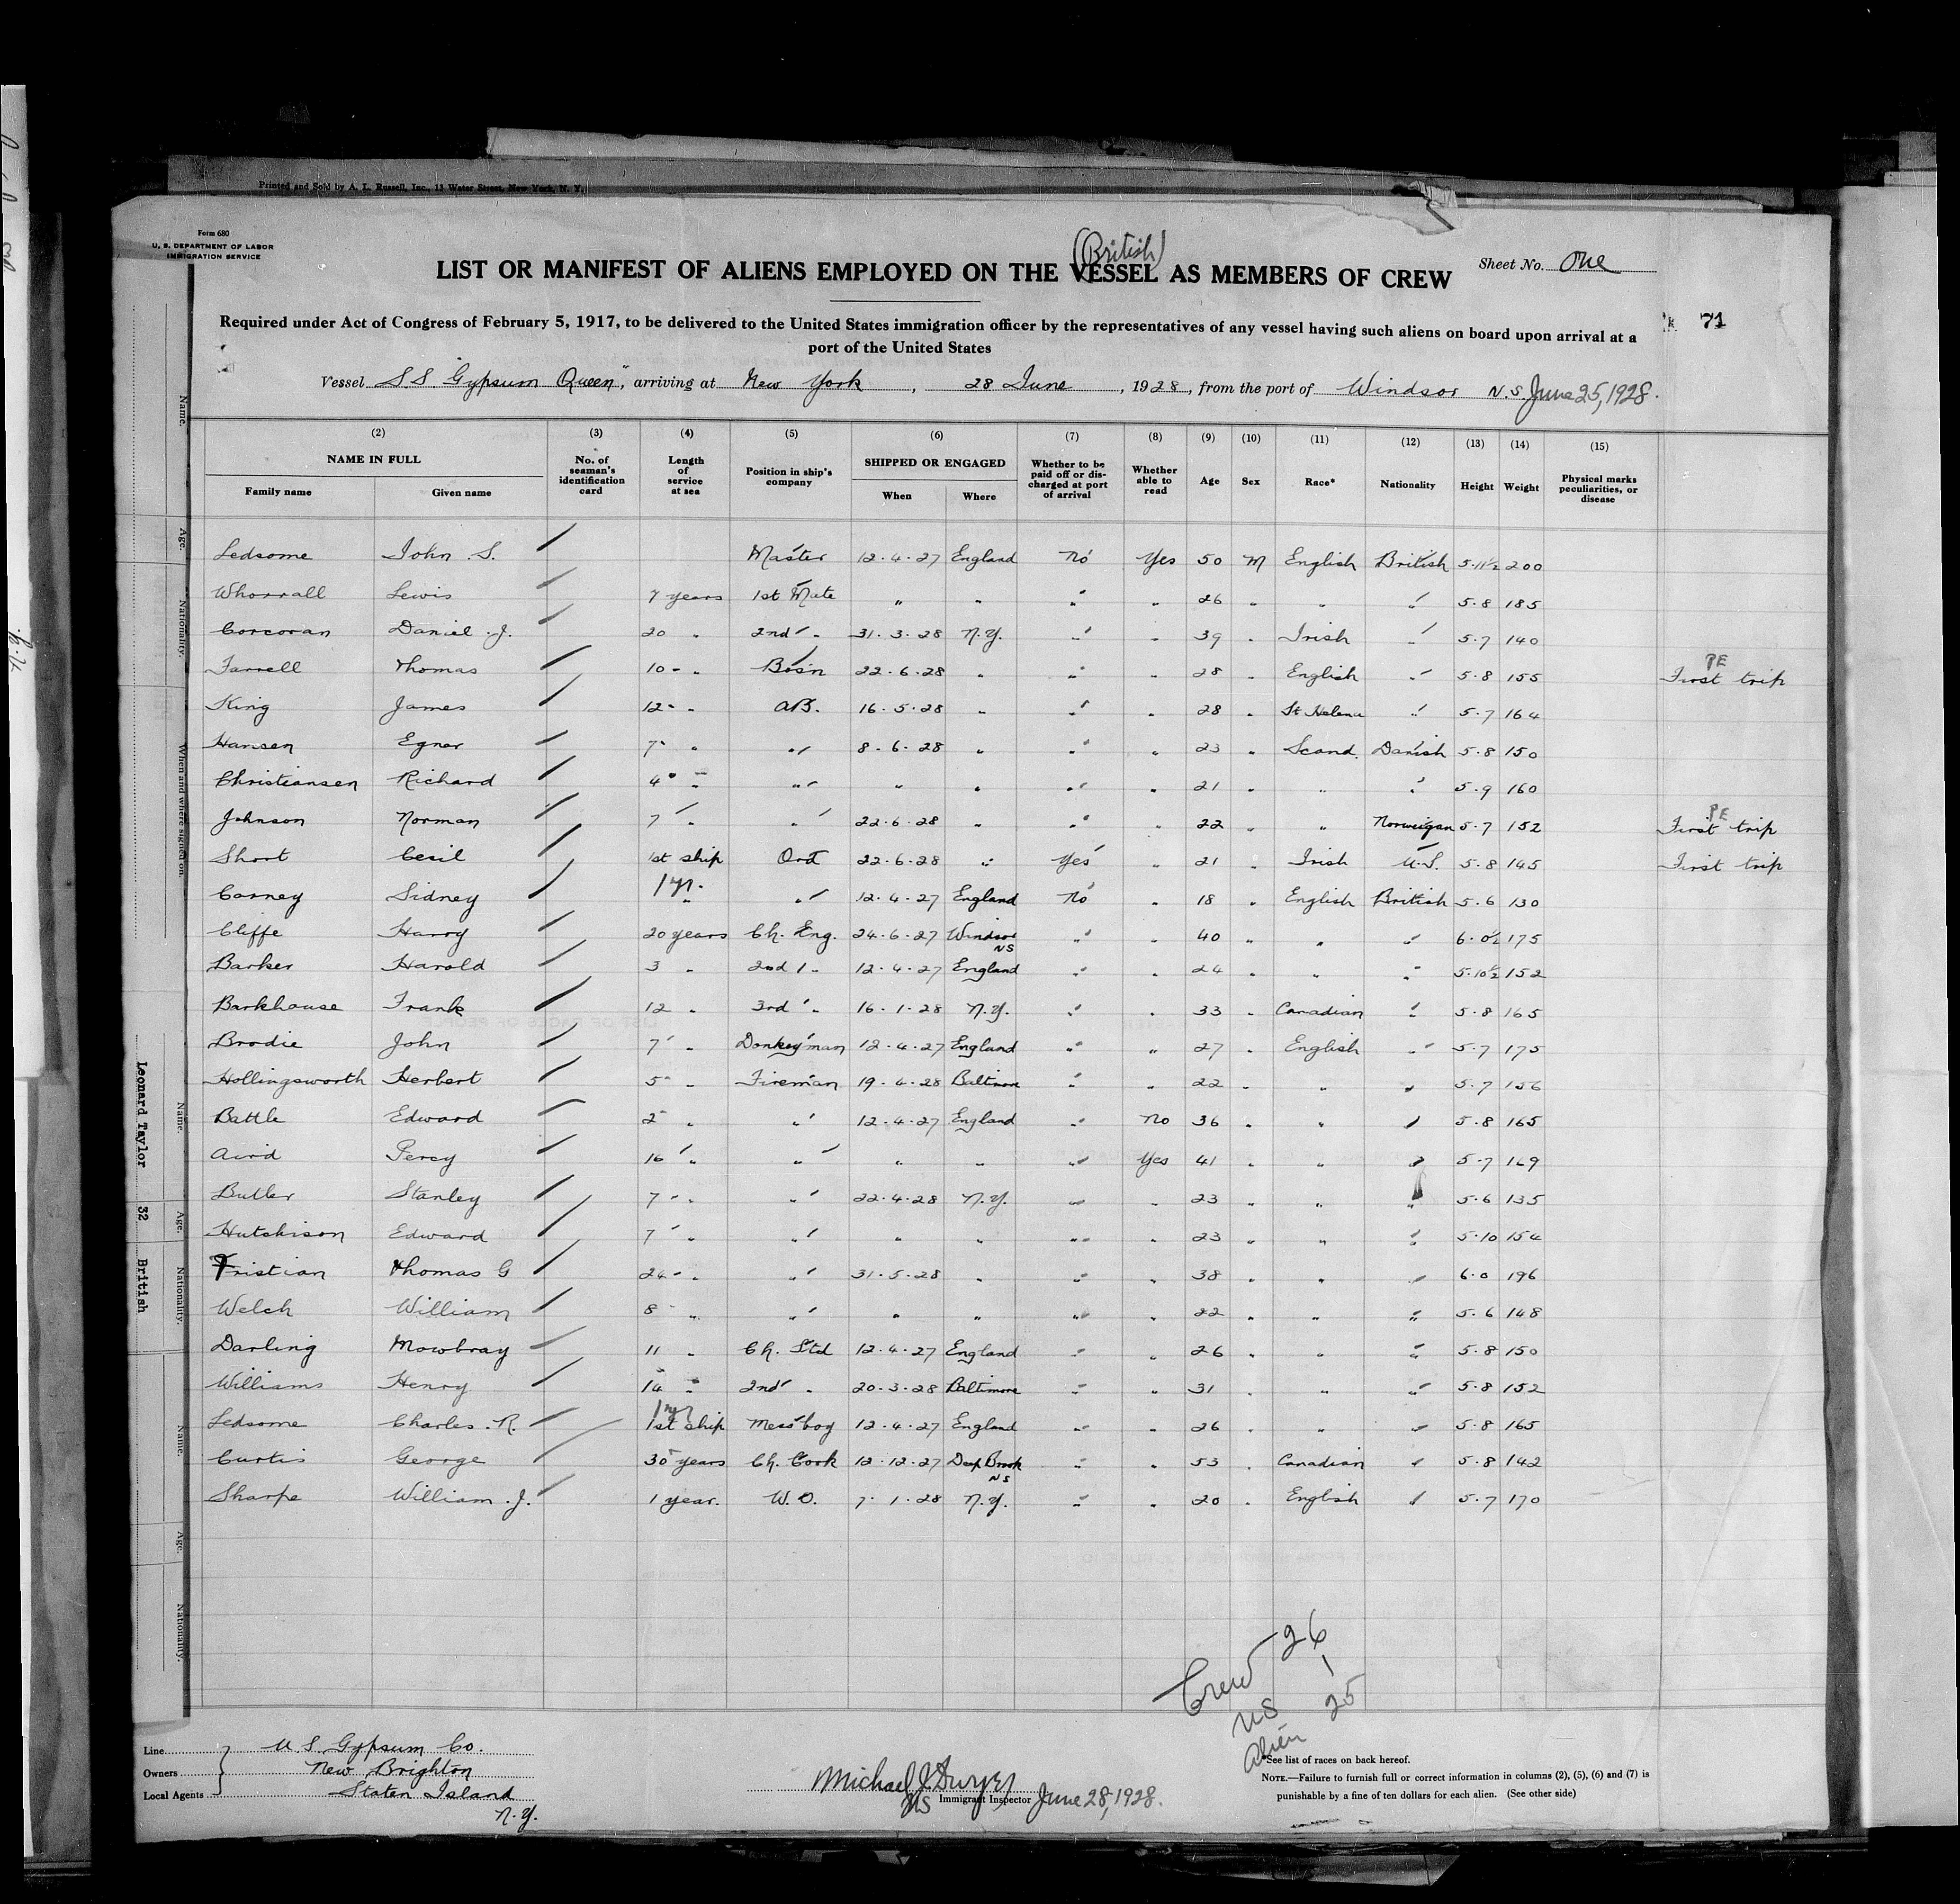 Printed and Sold by A. L. Russell, Inc., 13 Water Street, New York, N. Y.
Form 680
U. S. DEPARTMENT OF LABOR
IMMIGRATION SERVICE
(British)
LIST OR MANIFEST OF ALIENS EMPLOYED ON THE VESSEL AS MEMBERS OF CREW
Sheet No. One
Required under Act of Congress of February 5, 1917, to be delivered to the United States immigration officer by the representatives of any vessel having such aliens on board upon arrival at a
port of the United States
71
Vessel SS Gypsum Queen", arriving at New York, 28 June, 1928, from the port of Windsor N.S. June 25, 1928.
(2) (3) (4) (5) (6) (7) (8) (9) (10) (11) (12) (13) (14) (15)
NAME IN FULL
Family name Given name
No. of seaman's identification card
Length of service at sea
Position in ship's company
SHIPPED OR ENGAGED
When Where
Whether to be paid off or discharged at port of arrival
Whether able to read
Age Sex Race* Nationality Height Weight
Physical marks peculiarities, or disease
Ledsome John S. Master 12.4.27 England No Yes 50 M English British 5.11½ 200
Whorrall Lewis 7 years 1st Mate " " " " 26 " " " 5.8 185
Corcoran Daniel J. 20 " 2nd " 31.3.28 N.Y. " " 39 " Irish " 5.7 140
Farrell Thomas 10 " Bosn 22.6.28 " " " 28 " English " 5.8 155 PE First trip
King James 12 " AB. 16.5.28 " " " 28 " St Helena " 5.7 164
Hansen Egner 7 " " 8.6.28 " " " 23 " Scand. Danish 5.8 150
Christiansen Richard 4 " " " " " " 21 " " " 5.9 160
Johnson Norman 7 " " 22.6.28 " " " 22 " " Norweigan 5.7 152 PE First trip
Short Cecil 1st ship Ord 22.6.28 " Yes " 21 " Irish U.S. 5.8 145 First trip
Corney Sidney 1 yr. " " 12.4.27 England No " 18 " English British 5.6 130
Cliffe Harry 20 years Ch. Eng. 24.6.27 Windsor NS " " 40 " " " 6.0½ 175
Barker Harold 3 " 2nd " 12.4.27 England " " 24 " " " 5.10½ 152
Barkhouse Frank 12 " 3rd " 16.1.28 N.Y. " " 33 " Canadian " 5.8 165
Brodie John 7 " Donkeyman 12.4.27 England " " 27 " English " 5.7 175
Hollingsworth Herbert 5 " Fireman 19.4.28 Baltimore " " 22 " " " 5.7 156
Battle Edward 2 " " 12.4.27 England " No 36 " " " 5.8 165
Aird Percy 16 " " " " " Yes 41 " " " 5.7 169
Butler Stanley 7 " " 22.4.28 N.Y. " " 23 " " " 5.6 135
Hutchison Edward 7 " " " " " " 23 " " " 5.10 154
Tristian Thomas G 24 " " 31.5.28 " " " 38 " " " 6.0 196
Welch William 8 " " " " " " 22 " " " 5.6 148
Darling Mowbray 11 " Ch. Std 12.4.27 England " " 26 " " " 5.8 150
Williams Henry 14 " 2nd " 20.3.28 Baltimore " " 31 " " " 5.8 152
Ledsome Charles R. 1 yr 1st ship Messboy 12.4.27 England " " 26 " " " 5.8 165
Curtis George 35 years Ch. Cook 12.12.27 Deep Brook NS " " 53 " Canadian " 5.8 142
Sharpe William J. 1 year. W.O. 7.1.28 N.Y. " " 20 " English " 5.7 170
Crew 26
US 1
Alien 25
Line
Owners
Local Agents
U.S. Gypsum Co.
New Brighton
Staten Island
N.Y.
Michael J. Dwyer
US Immigrant Inspector June 28, 1928.
*See list of races on back hereof.
NOTE.—Failure to furnish full or correct information in columns (2), (5), (6) and (7) is
punishable by a fine of ten dollars for each alien. (See other side)
Name.
Age.
Nationality.
When and where signed on.
Name.
Age.
Nationality.
Name.
Age.
Nationality.
Leonard Taylor
32
British